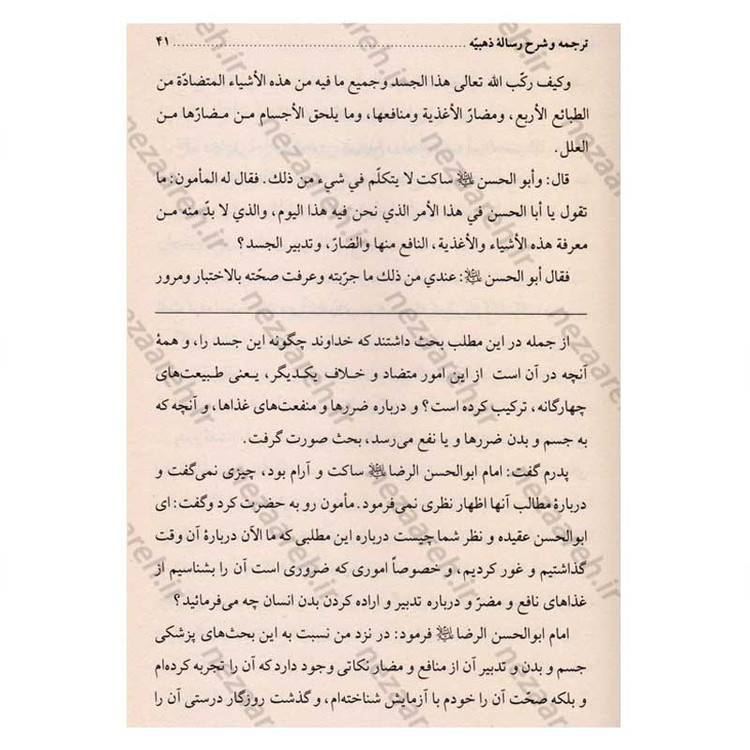 ترجمه و شرح رسالهٔ ذهبیّه ............................................................ ۴۱
وكيف ركّب الله تعالى هذا الجسد وجميع ما فيه من هذه الأشياء المتضادّة من
الطبائع الأربع، ومضارّ الأغذية ومنافعها، وما يلحق الأجسام مـن مـضارّها مـن
العلل.
قال: وأبو الحسن ساكت لا يتكلّم في شيء من ذلك. فقال له المأمون: ما
تقول يا أبا الحسن في هذا الأمر الذي نحن فيه هذا اليوم، والذي لا بدّ منه مـن
معرفة هذه الأشياء والأغذية، النافع منها والضارّ، وتدبير الجسد؟
فقال أبو الحسن : عندي من ذلك ما جرّبته وعرفت صحّته بالاختبار ومرور
از جمله در این مطلب بحث داشتند که خداوند چگونه این جسد را، و همهٔ
آنچه در آن است از این امور متضاد و خـلاف یکـدیگر، یـعنی طـبیعت‌های
چهارگانه، ترکیب کرده است؟ و درباره ضررها و منفعت‌های غذاها، و آنچه که
به جسم و بدن ضررها و یا نفع می‌رسد، بحث صورت گرفت.
پدرم گفت: امام ابوالحسن الرضا ساکت و آرام بود، چیزی نمی‌گفت و
دربارهٔ مطالب آنها اظهار نظری نمی‌فرمود. مأمون رو به حضرت کرد وگفت: ای
ابوالحسن عقیده و نظر شما چیست درباره این مطلبی که ما الآن دربارهٔ آن وقت
گذاشتیم و غور کردیم، و خصوصاً اموری که ضروری است آن را بشناسیم از
غذاهای نافع و مضرّ و درباره تدبیر و اراده کردن بدن انسان چه می‌فرمائید؟
امام ابوالحسن الرضا فرمود: در نزد من نسبت به این بحث‌های پزشکی
جسم و بدن و تدبیر آن از منافع و مضار نکاتی وجود دارد که آن را تجربه کرده‌ام
و بلکه صحّت آن را خودم با آزمایش شناخته‌ام، و گذشت روزگار درستی آن را
nezaareh.ir